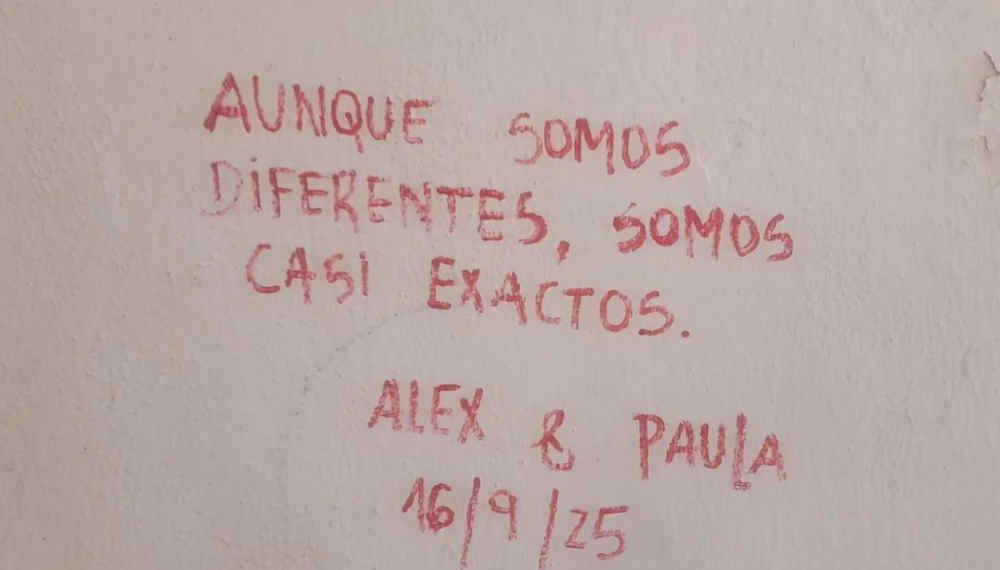 AUNQUE SOMOS
DIFERENTES, SOMOS
CASI EXACTOS.
ALEX & PAULA
16/9/25